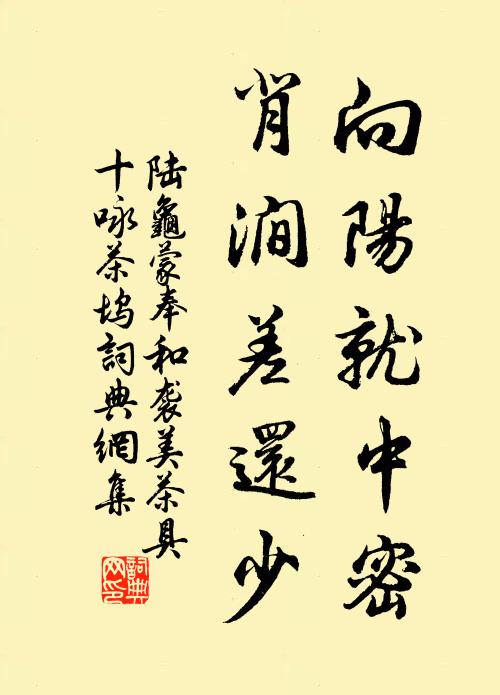 向陽就中密
背澗差還少
陸龜蒙奉和袭美茶具
十咏茶塢詞典網集
詞典
网印